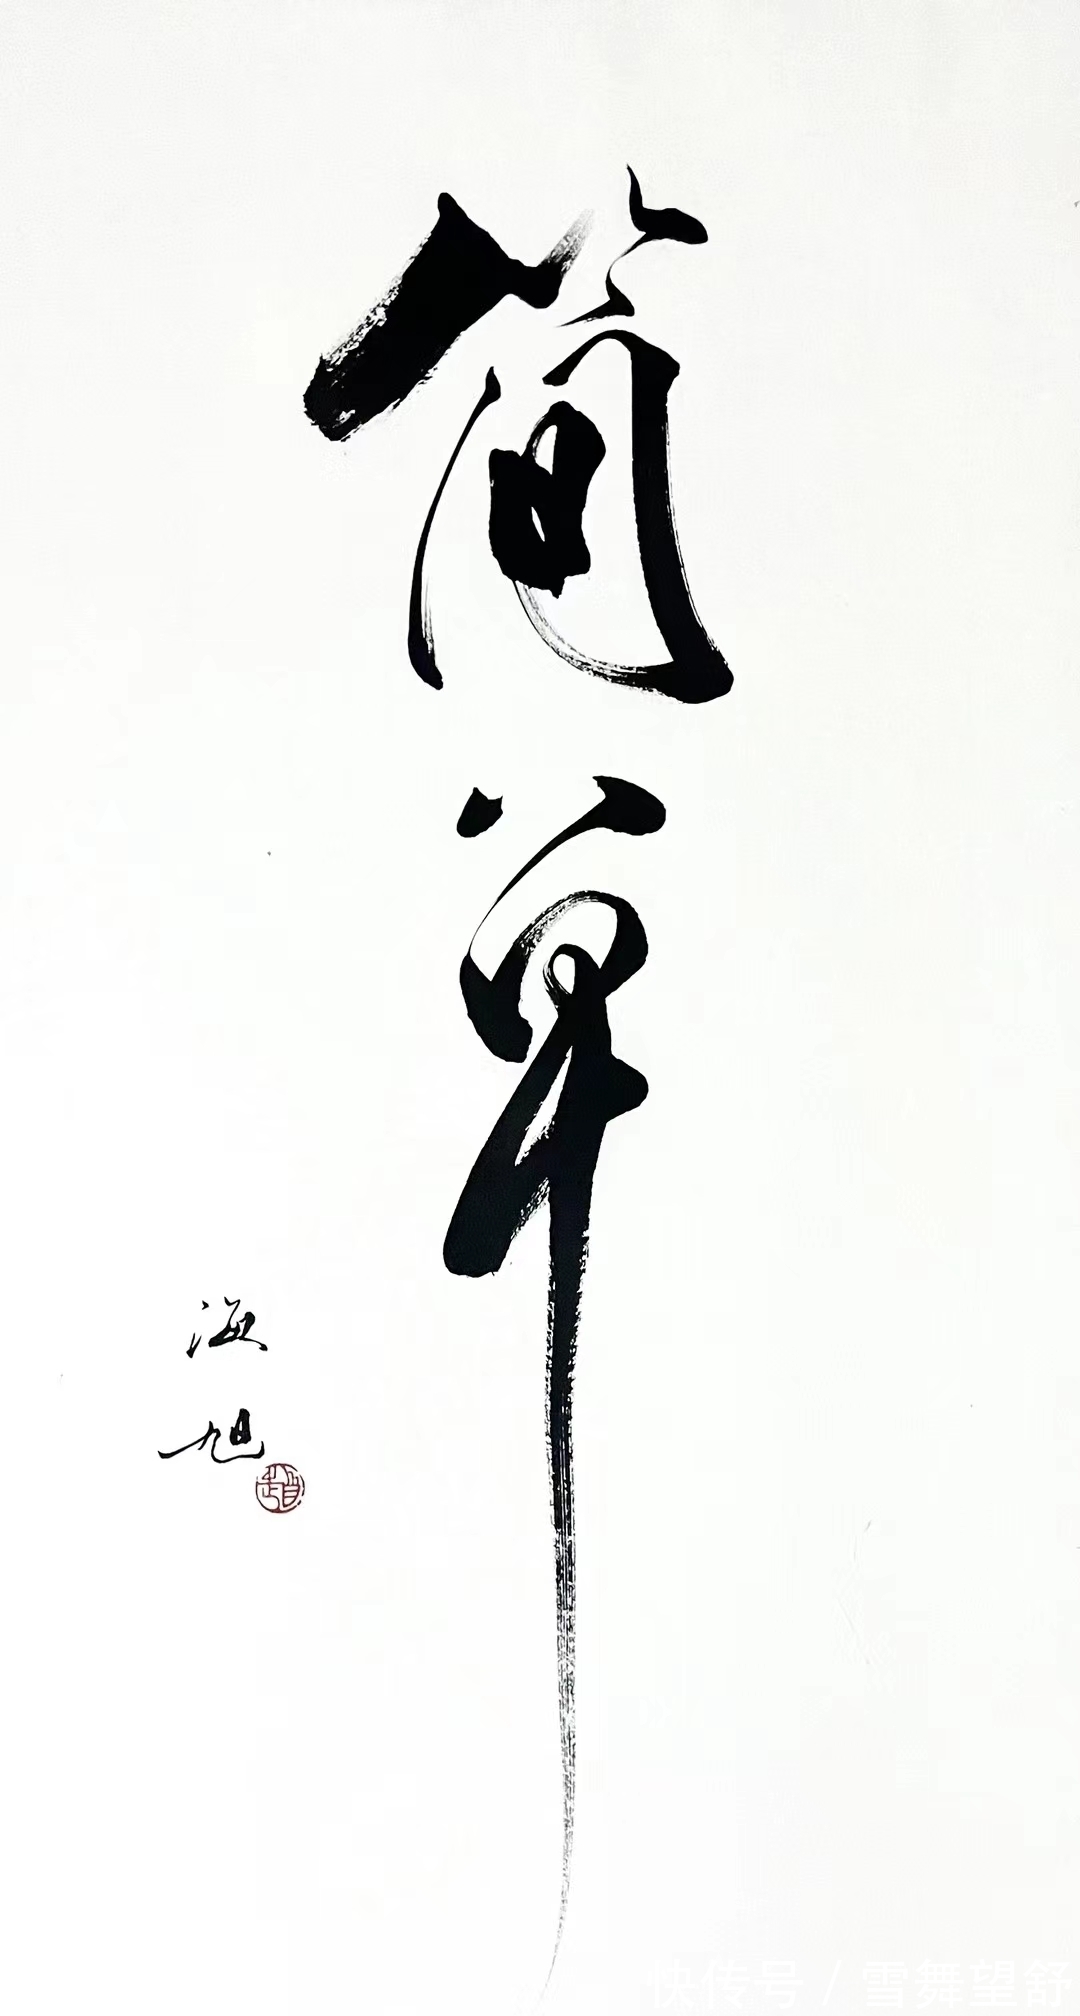 简单
海旭
快传号 / 雪舞望舒